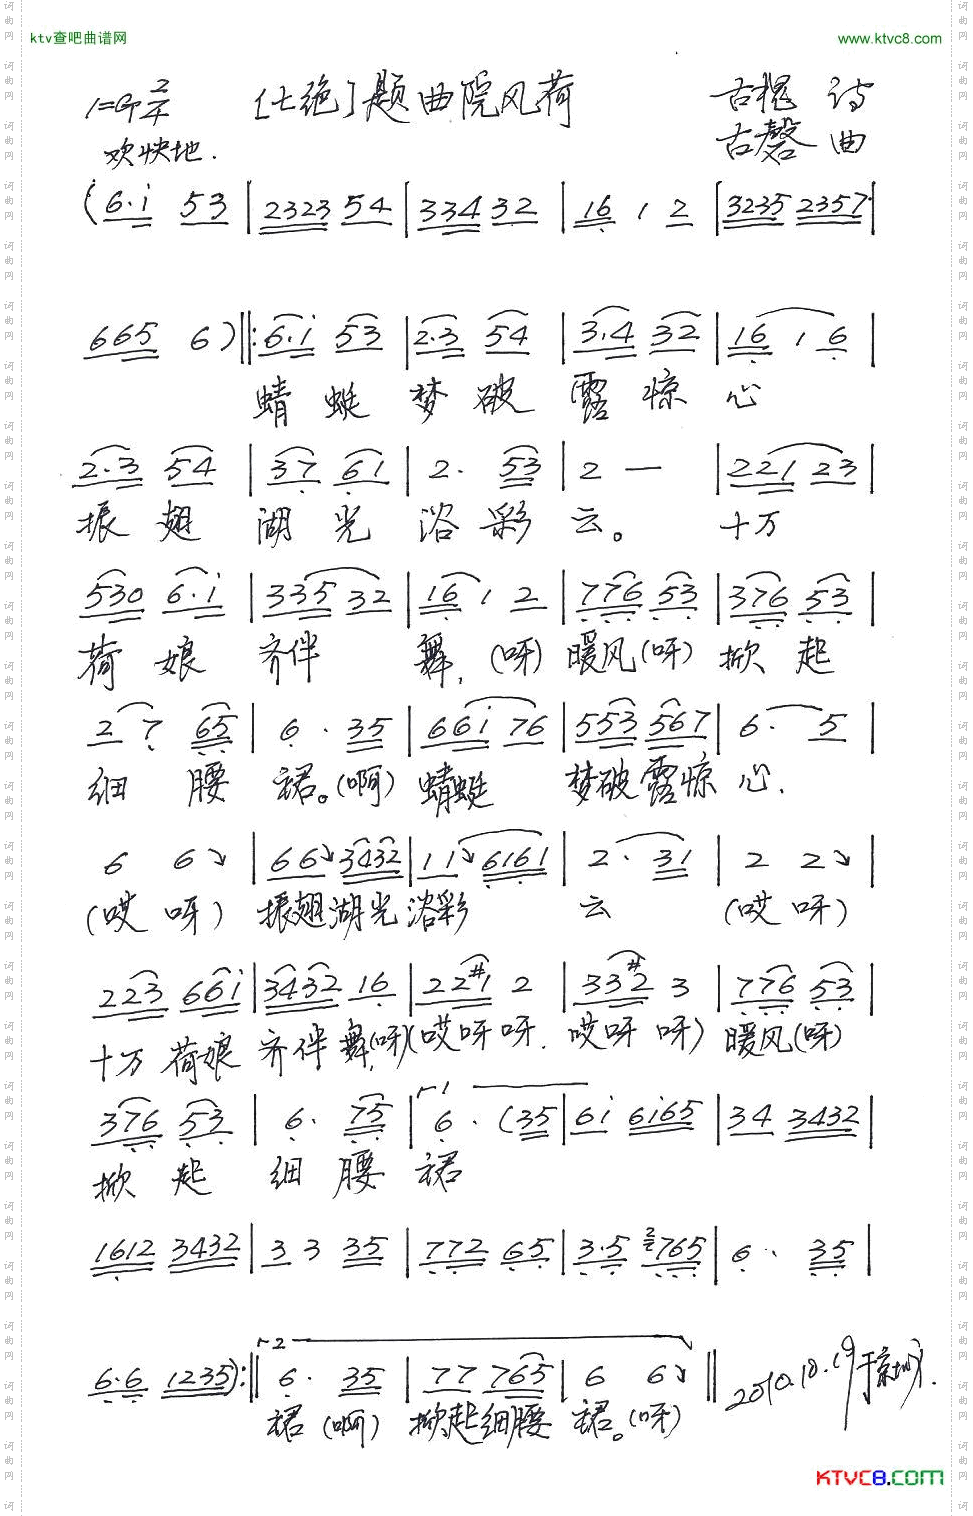 ktv查吧曲谱网 www.ktvc8.com
1=G 2/4 [七绝]题曲院风荷 古槐 诗
欢快地. 古磬 曲
(6·i 53 | 2323 54 | 334 32 | 16 1 2 | 3235 2357 |
665 6) ‖: 6·i 53 | 2·3 54 | 3·4 32 | 16 1 6 |
蜻蜓 梦破 露惊 心
2·3 54 | 37 61 | 2· 53 | 2 — | 221 23 |
振翅 湖光 浴彩 云。 十万
530 6·i | 335 32 | 16 1 2 | 776 53 | 376 53 |
荷娘 齐伴 舞,(呀) 暖风(呀) 掀起
2 7 65 | 6· 35 | 66i 76 | 553 567 | 6· 5 |
细腰 裙。(啊) 蜻蜓 梦破露惊 心.
6 6↘ | 66↘ 3432 | 11↘ 6161 | 2· 31 | 2 2↘ |
(哎呀) 振翅湖光 浴彩 云 (哎呀)
223 66i | 3432 16 | 22#1 2 | 33#2 3 | 776 53 |
十万荷娘 齐伴舞,(呀)(哎呀呀. 哎呀呀) 暖风(呀)
376 53 | 6· 75 | 1 6· (35 | 6i 6i65 | 34 3432 |
掀起 细腰 裙
1612 3432 | 3 3 35 | 772 65 | 3·5 2765 | 6· 35 |
6·6 1235) :‖ 2 6· 35 | 77 765 | 6 6↘ ‖ 2010.10.19于京城.
裙(啊) 掀起细腰 裙。(呀)
KTVC8.COM
词曲网